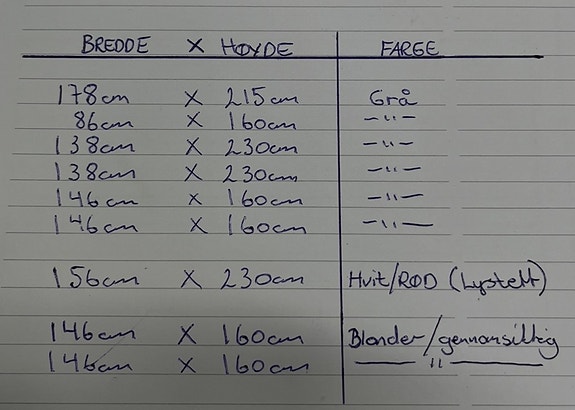 BREDDE X HØYDE FARGE
178cm X 215cm Grå
86cm X 160cm —"—
138cm X 230cm —"—
138cm X 230cm —"—
146cm X 160cm —"—
146cm X 160cm —"—
156cm X 230cm Hvit/RØD (Lystett)
146cm X 160cm Blonder/gennomsiktig
146cm X 160cm —"—